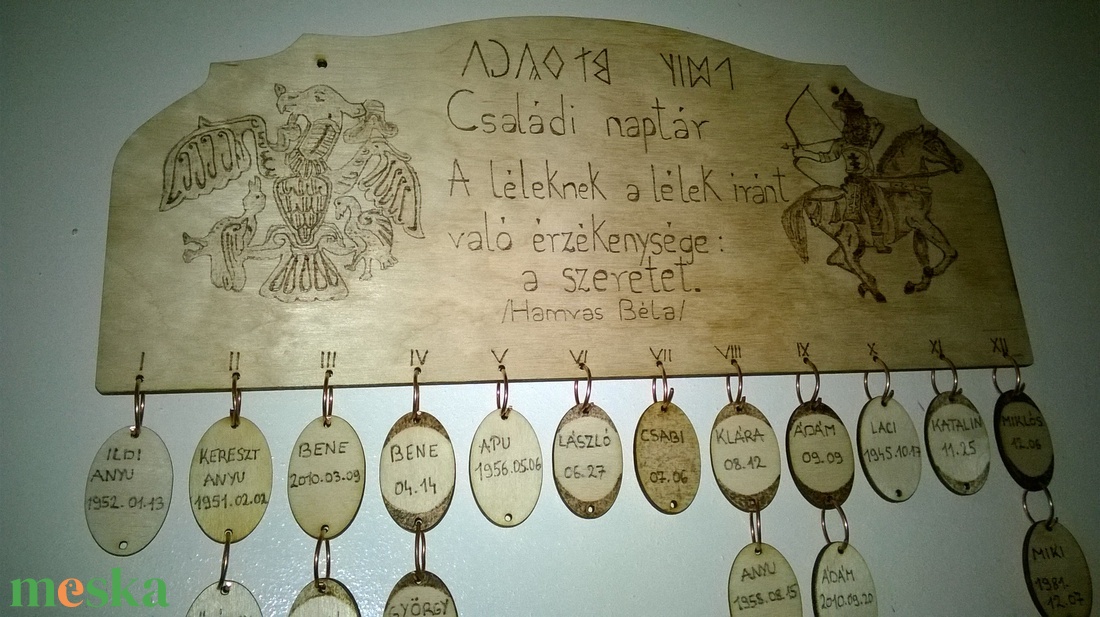 Családi naptár
A léleknek a lélek iránt
való érzékenysége:
a szeretet.
/Hamvas Béla/
I II III IV V VI VII VIII IX X XI XII
ILDI
ANYU
1952.01.13
KERESZT
ANYU
1951.02.02
BENE
2010.03.09
BENE
04.14
APU
1956.05.06
LÁSZLÓ
06.27
CSABI
07.06
KLÁRA
08.12
ÁDÁM
09.09
LACI
1945.10.17
KATALIN
11.25
MIKLÓS
12.06
GYÖRGY
ANYU
1958.08.15
ÁDÁM
2010.09.20
MIKI
1981.
12.07
meska